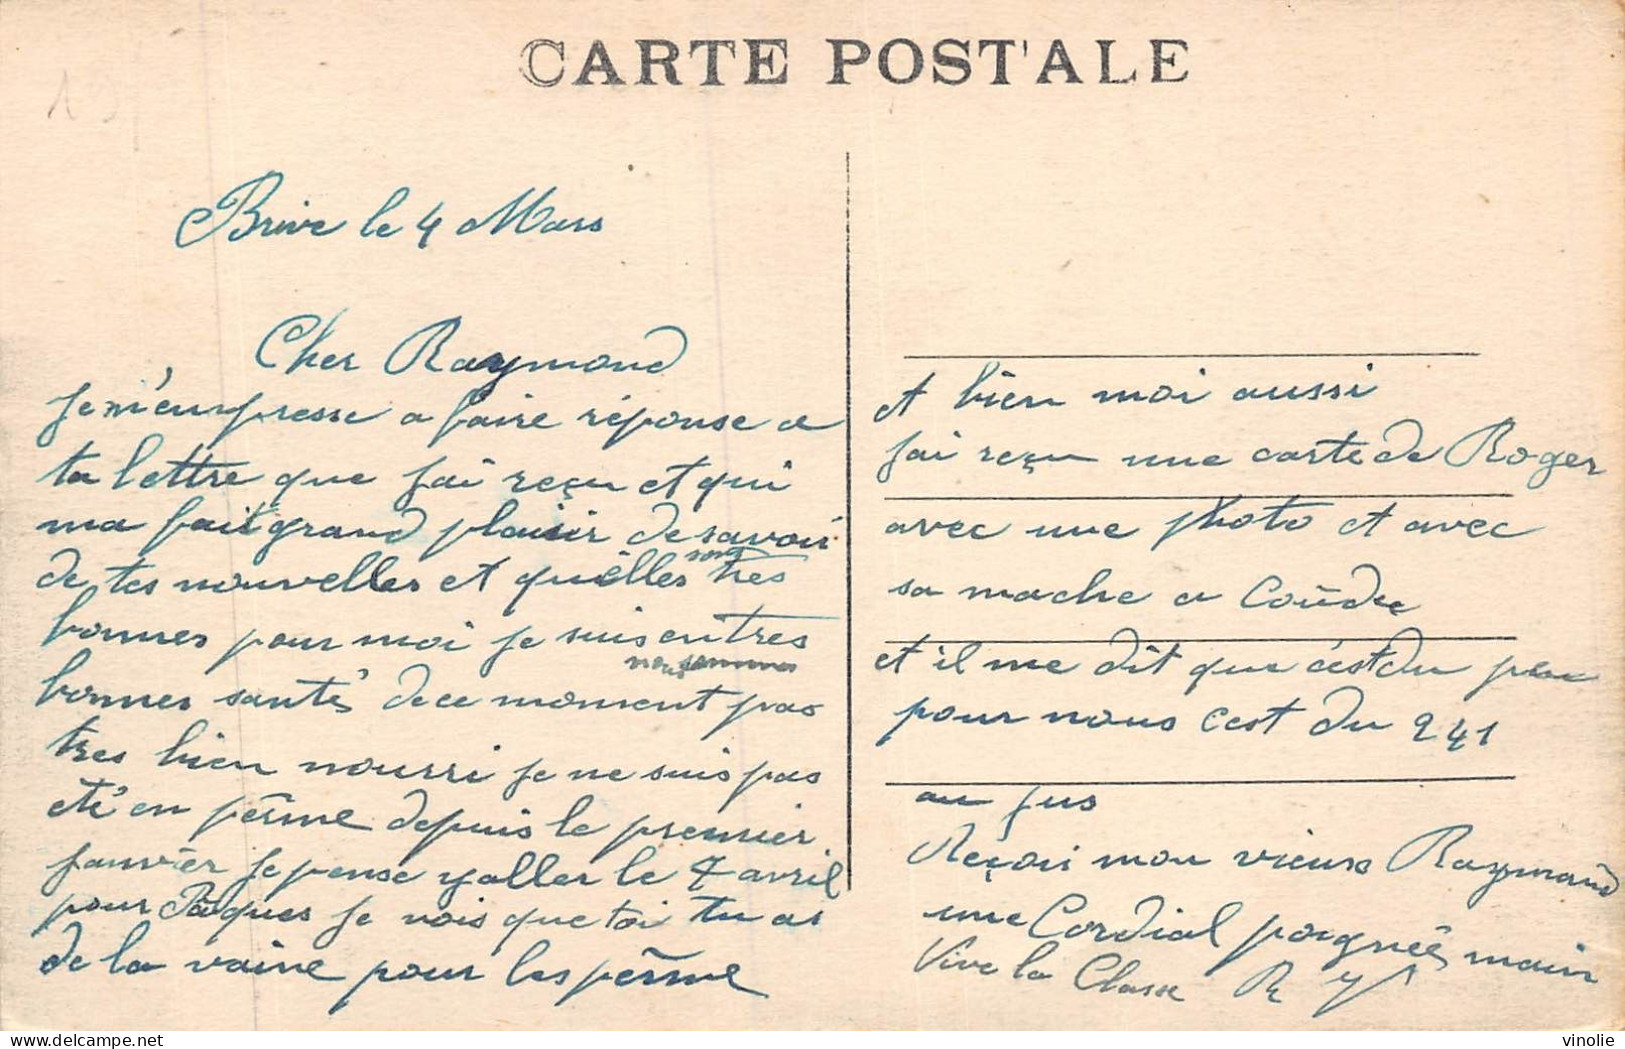 CARTE POSTALE
Brive le 4 Mars
Cher Raymond
Je m'empresse a faire réponse a
ta lettre que jai reçu et qui
ma fait grand plaisir de savoir
de tes nouvelles et quelles sont tres
bonnes pour moi je suis en tres
bonnes santé de ce moment nous sommes pas
tres bien nourri je ne suis pas
été en perme depuis le premier
janvier je pense y aller le 7 avril
pour Pâques je vois que toi tu as
de la vaine pour les perme
et bien moi aussi
jai reçu une carte de Roger
avec une photo et avec
sa mache a
et il me dit que c'est du
pour nous c'est du 241
au jus
Reçoi mon vieux Raymond
une Cordial poignée main
Vive la Classe R Y
vinolie